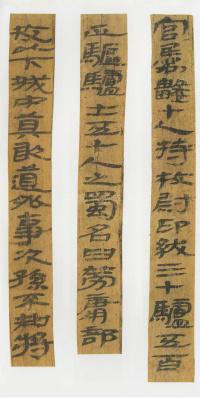 官屬數十人持校尉印紱三十驢五百
匹驅驢士五十人之蜀名曰勞庸部
校以下城中莫敢道外事次孫不知將